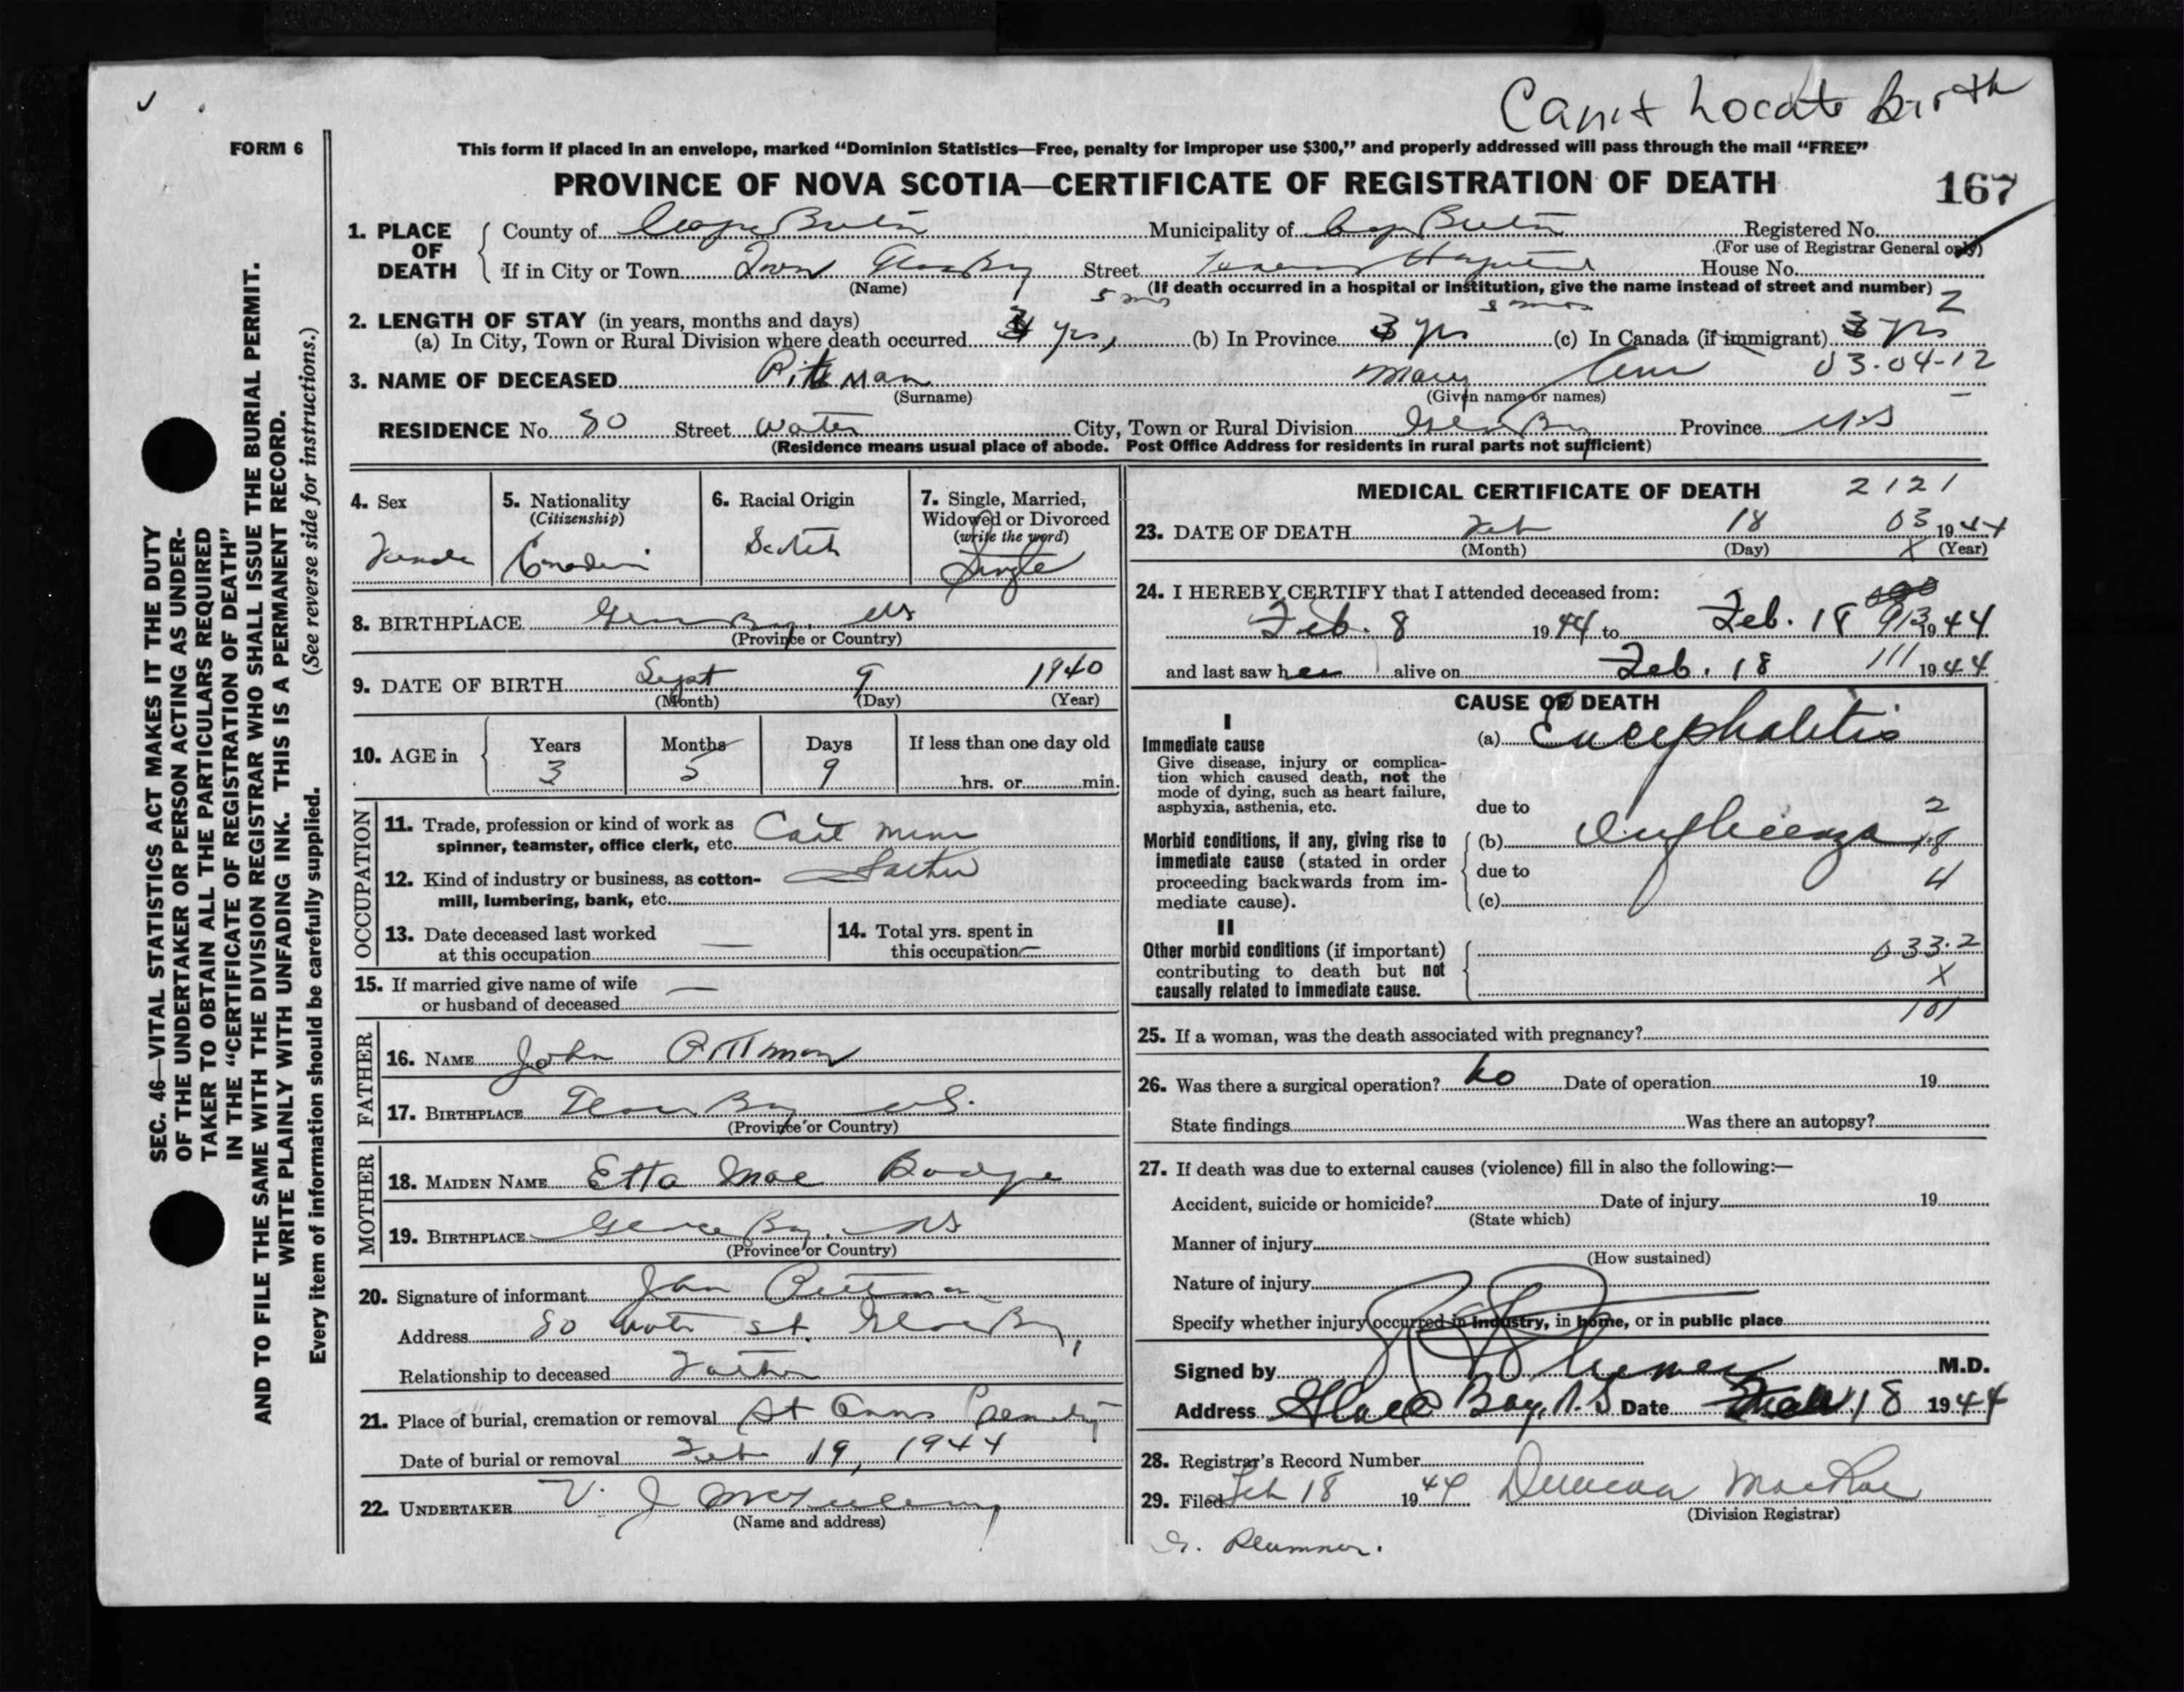 Can't Locate birth
FORM 6
This form if placed in an envelope, marked “Dominion Statistics—Free, penalty for improper use $300,” and properly addressed will pass through the mail “FREE”
PROVINCE OF NOVA SCOTIA—CERTIFICATE OF REGISTRATION OF DEATH
167
1. PLACE OF DEATH
County of Cape Breton Municipality of Cape Breton Registered No.
(For use of Registrar General only)
If in City or Town Town Glace Bay Street Hospital House No.
(Name) (If death occurred in a hospital or institution, give the name instead of street and number) 2
5 mos 5 mos
2. LENGTH OF STAY (in years, months and days)
(a) In City, Town or Rural Division where death occurred 3 yrs, (b) In Province 3 yrs (c) In Canada (if immigrant) 3 yrs
3. NAME OF DECEASED Pittman Mary Ann 03-04-12
(Surname) (Given name or names)
RESIDENCE No. 80 Street Water City, Town or Rural Division Glace Bay Province N.S
(Residence means usual place of abode. Post Office Address for residents in rural parts not sufficient)
4. Sex
Female
5. Nationality
(Citizenship)
Canadian
6. Racial Origin
Scotch
7. Single, Married,
Widowed or Divorced
(write the word)
Single
8. BIRTHPLACE Glace Bay, NS
(Province or Country)
9. DATE OF BIRTH Sept 9 1940
(Month) (Day) (Year)
10. AGE in
Years Months Days If less than one day old
3 5 9 hrs. or min.
OCCUPATION
11. Trade, profession or kind of work as
spinner, teamster, office clerk, etc.
12. Kind of industry or business, as cotton-
mill, lumbering, bank, etc.
Father
13. Date deceased last worked
at this occupation —
14. Total yrs. spent in
this occupation —
15. If married give name of wife
or husband of deceased —
FATHER
16. NAME John Pittman
17. BIRTHPLACE Glace Bay N.S.
(Province or Country)
MOTHER
18. MAIDEN NAME Etta Mae Budge
19. BIRTHPLACE Glace Bay, NS
(Province or Country)
20. Signature of informant John Pittman
Address 80 Water St. Glace Bay,
Relationship to deceased Father
21. Place of burial, cremation or removal St Anns Cemetery
Date of burial or removal Feb 19, 1944
22. UNDERTAKER V. J.
(Name and address)
MEDICAL CERTIFICATE OF DEATH 2121
23. DATE OF DEATH Feb 18 03 1944
(Month) (Day) X (Year)
24. I HEREBY CERTIFY that I attended deceased from:
Feb. 8 1944 to Feb. 18 913 1944
and last saw her alive on Feb. 18 111 1944
CAUSE OF DEATH
I
Immediate cause
Give disease, injury or complica-
tion which caused death, not the
mode of dying, such as heart failure,
asphyxia, asthenia, etc.
(a) Encephalitis
due to 2
Morbid conditions, if any, giving rise to
immediate cause (stated in order
proceeding backwards from im-
mediate cause).
(b) Influenza 18
due to 4
(c)
II
Other morbid conditions (if important)
contributing to death but not
causally related to immediate cause.
033.2
X
101
25. If a woman, was the death associated with pregnancy?
26. Was there a surgical operation? No Date of operation 19
State findings Was there an autopsy?
27. If death was due to external causes (violence) fill in also the following:—
Accident, suicide or homicide? Date of injury 19
(State which)
Manner of injury
(How sustained)
Nature of injury
Specify whether injury occurred in industry, in home, or in public place
Signed by M.D.
Address Glace Bay, N.S Date 18 1944
28. Registrar's Record Number
29. Filed Feb 18 1944 Duncan MacRae
(Division Registrar)
G. Plummer.
SEC. 46—VITAL STATISTICS ACT MAKES IT THE DUTY
OF THE UNDERTAKER OR PERSON ACTING AS UNDER-
TAKER TO OBTAIN ALL THE PARTICULARS REQUIRED
IN THE “CERTIFICATE OF REGISTRATION OF DEATH”
AND TO FILE THE SAME WITH THE DIVISION REGISTRAR WHO SHALL ISSUE THE BURIAL PERMIT.
WRITE PLAINLY WITH UNFADING INK. THIS IS A PERMANENT RECORD.
Every item of information should be carefully supplied. (See reverse side for instructions.)